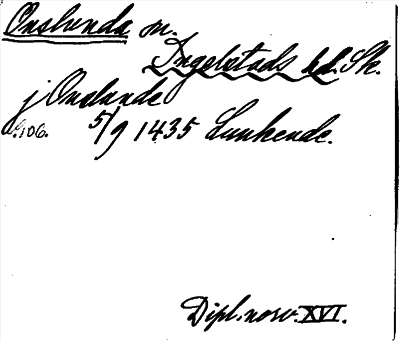 Onslunda sn.
Ingelstads hd. Sk.
j Onslunde
s.106. 5/9 1435 Lunkende.
Dipl. norv. XVI.